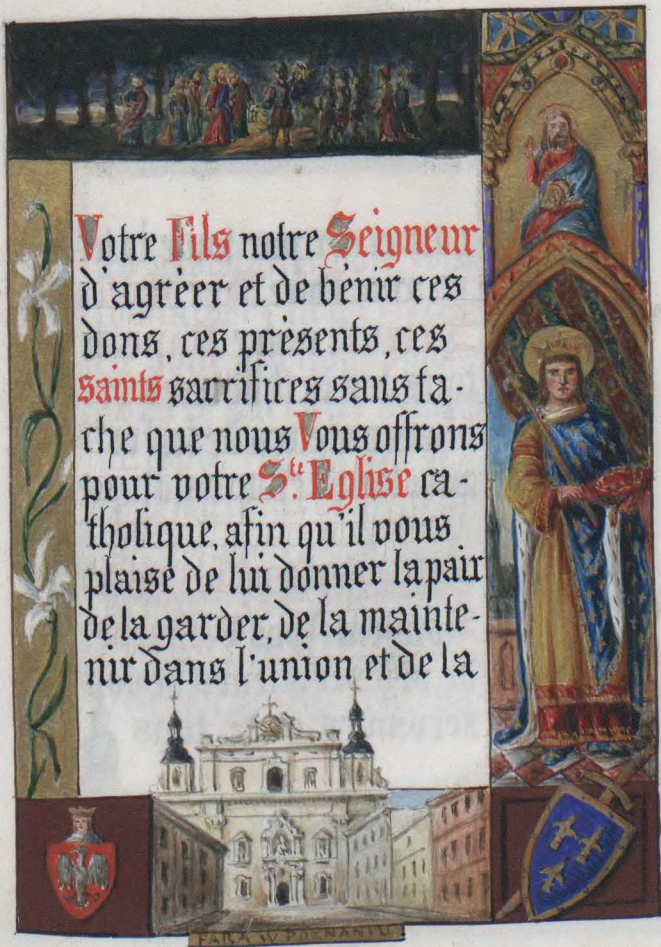 Votre Fils notre Seigneur
d'agrèer et de bènir ces
dons, ces prèsents, ces
saints sacrifices sans ta-
che que nous Vous offrons
pour votre Ste. Eglise ca-
tholique, afin qu'il vous
plaise de lui donner la paix
de la garder, de la mainte-
nir dans l'union et de la
FARA W POZNANIU